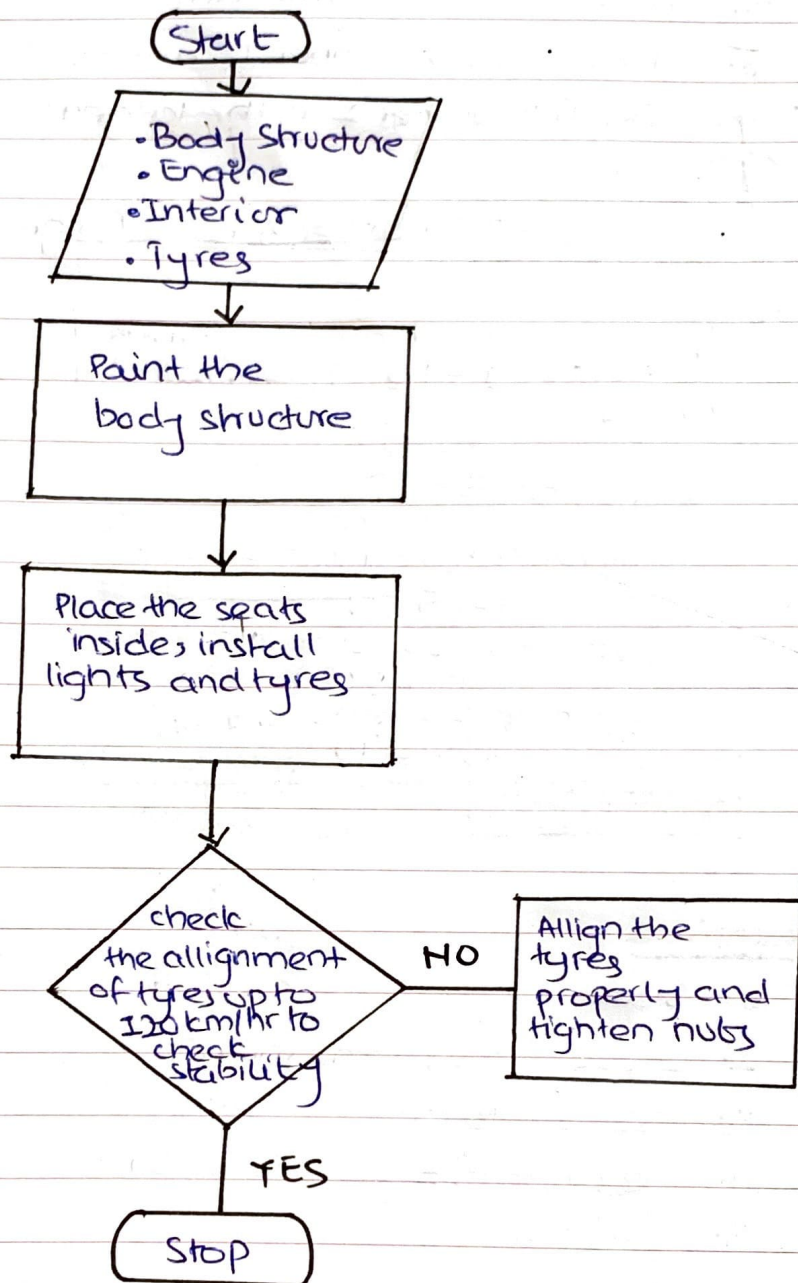 Start
• Body Structure
• Engine
• Interior
• Tyres
Paint the
body structure
Place the seats
inside, install
lights and tyres
check
the allignment
of tyres upto
120 km/hr to
check
stability
NO
Allign the
tyres
properly and
tighten nuts
YES
Stop